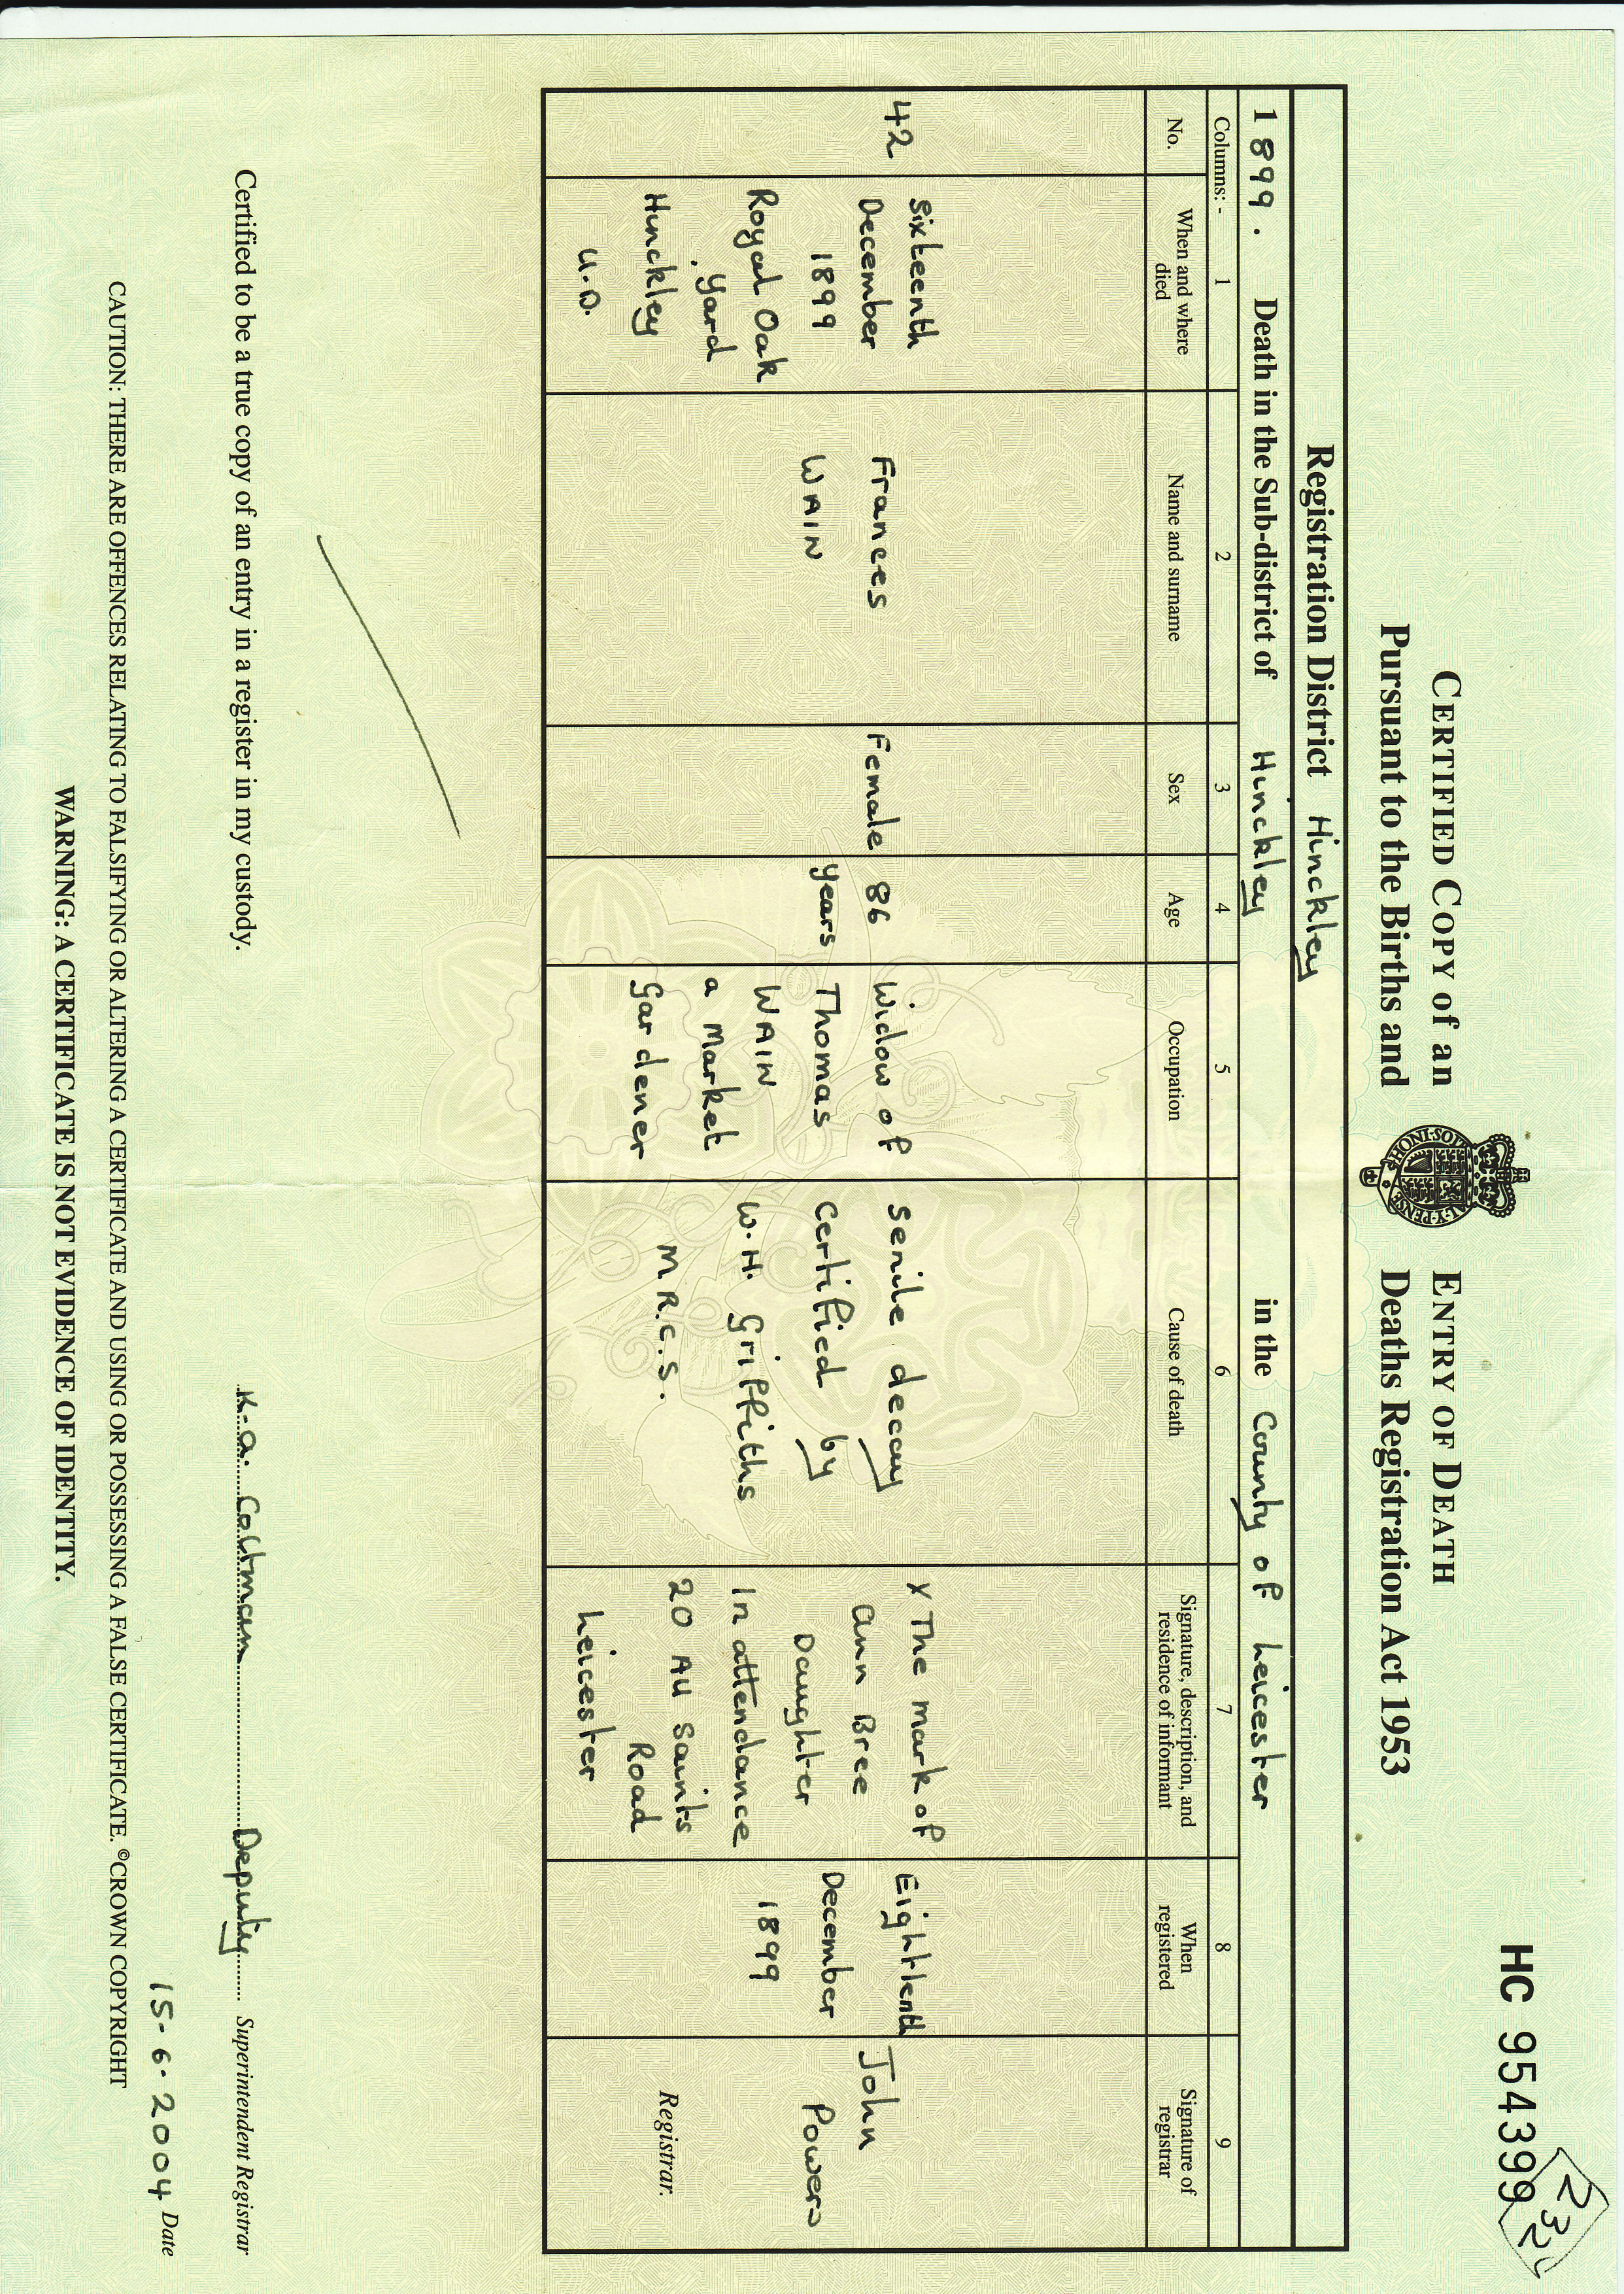 HC 954399
232
CERTIFIED COPY of an ENTRY OF DEATH
Pursuant to the Births and Deaths Registration Act 1953
HONI·SOIT QUI MAL·Y·PENSE
Registration District Hinckley
1899. Death in the Sub-district of Hinckley in the County of Leicester
Columns:- 1 2 3 4 5 6 7 8 9
No.
When and where
died
Name and surname
Sex
Age
Occupation
Cause of death
Signature, description, and
residence of informant
When
registered
Signature of
registrar
42
Sixteenth
December
1899
Royal Oak
Yard
Hinckley
U.D.
Frances
WAIN
Female
86
years
Widow of
Thomas
WAIN
a Market
Gardener
Senile decay
Certified by
W.H. Griffiths
M R.C.S.
X The mark of
Ann Bree
Daughter
In attendance
20 All Saints
Road
Leicester
Eightenth
December
1899
John
Powers
Registrar.
Certified to be a true copy of an entry in a register in my custody.
K.A. Coltman Deputy Superintendent Registrar
15.6.2004 Date
CAUTION: THERE ARE OFFENCES RELATING TO FALSIFYING OR ALTERING A CERTIFICATE AND USING OR POSSESSING A FALSE CERTIFICATE. ©CROWN COPYRIGHT
WARNING: A CERTIFICATE IS NOT EVIDENCE OF IDENTITY.